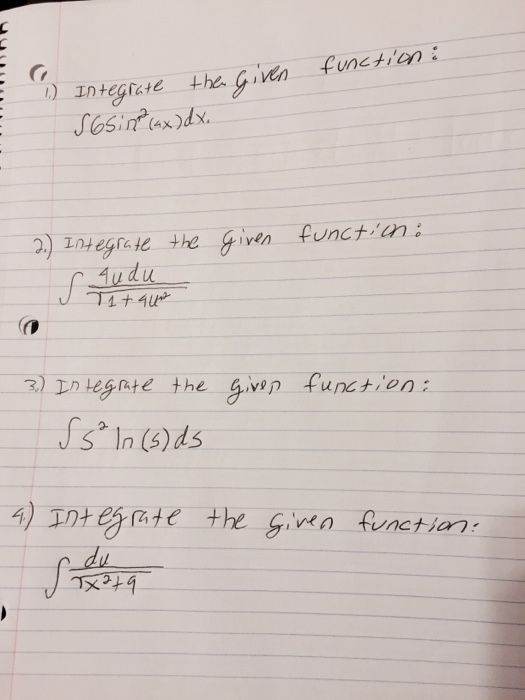 1.) Integrate the given function:
∫6sin²(4x)dx.
2.) Integrate the given function:
∫ 4udu
√1+4u²
3.) Integrate the given function:
∫s² ln(s)ds
4.) Integrate the given function:
∫ du
√x²+9